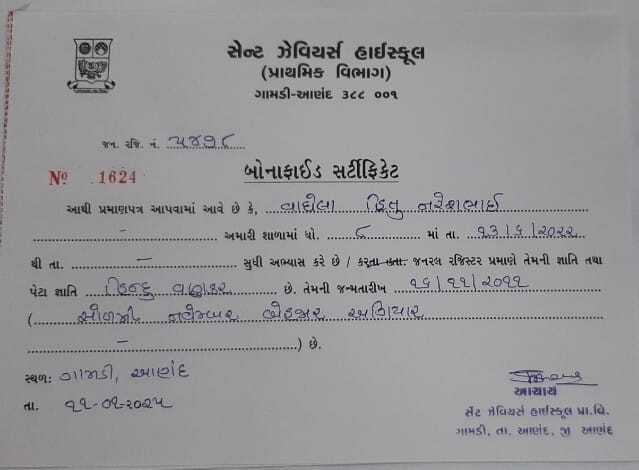 સેન્ટ ઝેવિયર્સ હાઈસ્કૂલ
(પ્રાથમિક વિભાગ)
ગામડી-આણંદ ૩૮૮ ૦૦૧
જન. રજિ. નં. ૫૪૭૮
Nº 1624
બોનાફાઈડ સર્ટીફિકેટ
આથી પ્રમાણપત્ર આપવામાં આવે છે કે, વાઘેલા હિતુ નરેશભાઈ
– અમારી શાળામાં ધો. ૮ માં તા. ૧૩/૬/૨૦૨૨
થી તા. – સુધી અભ્યાસ કરે છે / કરતા હતા. જનરલ રજિસ્ટર પ્રમાણે તેમની જ્ઞાતિ તથા
પેટા જ્ઞાતિ હિન્દુ વણકર છે. તેમની જન્મતારીખ ૧૬/૧૧/૨૦૧૧
( સોળમી નવેમ્બર બેહજાર અગિયાર
– ) છે.
સ્થળ: ગામડી, આણંદ
તા. ૨૧-૦૧-૨૦૨૫
આચાર્ય
સેંટ ઝેવિયર્સ હાઈસ્કૂલ પ્રા.વિ.
ગામડી, તા. આણંદ, જી આણંદ